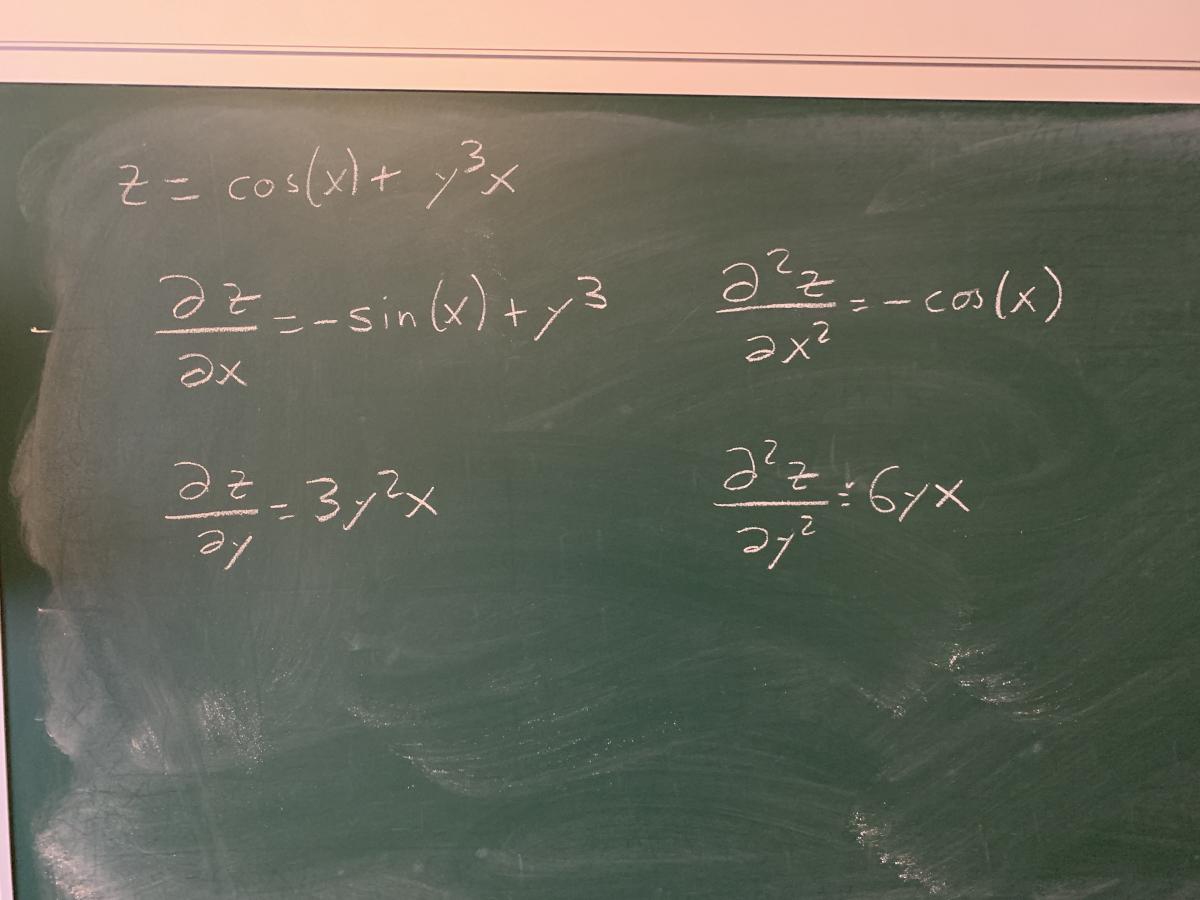 z = cos(x) + y³x
∂z/∂x = -sin(x) + y³
∂²z/∂x² = -cos(x)
∂z/∂y = 3y²x
∂²z/∂y² = 6yx